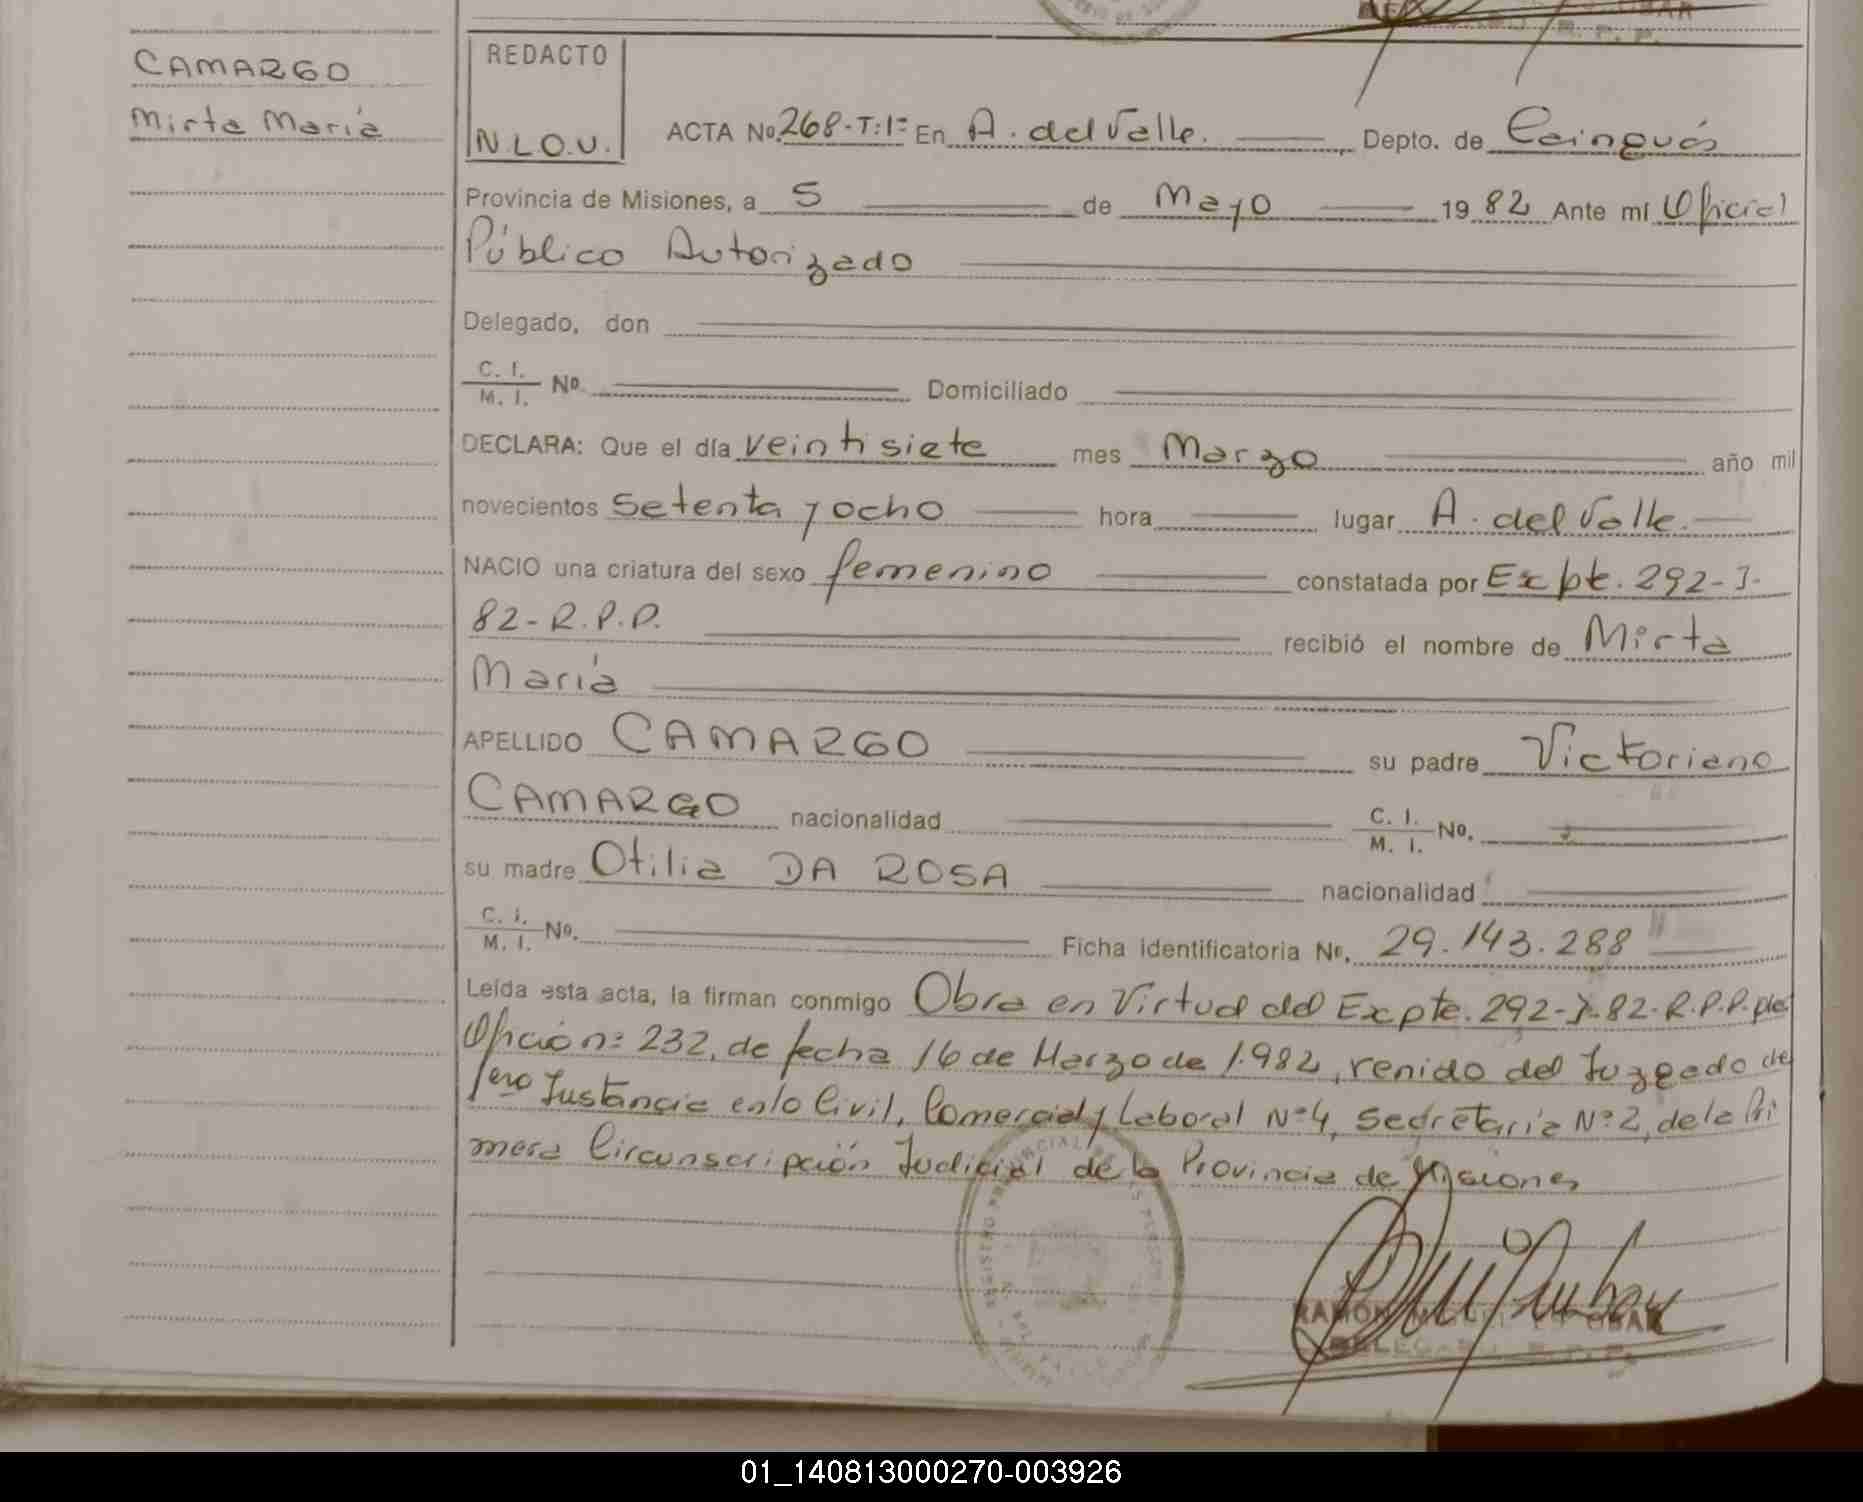 CAMARGO
Mirta María
REDACTO
N.L.O.V.
ACTA Nº 268-T:1º En A. del Valle. Depto. de Cainguás
Provincia de Misiones, a 5 de Mayo 1982 Ante mí Oficial
Público Autorizado
Delegado, don
C. I. / M. I. Nº Domiciliado
DECLARA: Que el día veintisiete mes Marzo año mil
novecientos setenta y ocho hora lugar A. del Valle.
NACIO una criatura del sexo femenino constatada por Expte. 292-J-
82-R.P.P. recibió el nombre de Mirta
María
APELLIDO CAMARGO su padre Victoriano
CAMARGO nacionalidad C. I. / M. I. Nº.
su madre Otilia DA ROSA nacionalidad
C. I. / M. I. Nº. Ficha identificatoria Nº. 29.143.288
Leída esta acta, la firman conmigo Obra en Virtud del Expte. 292-J-82-R.P.P.
Oficio nº 232, de fecha 16 de Marzo de 1.982, venido del Juzgado de
1ero Instancia en lo Civil, Comercial y Laboral Nº 4, Secretaría Nº 2, de la Pri
mera Circunscripción Judicial de la Provincia de Misiones
REGISTRO PROVINCIAL DE LAS PERSONAS
RAMON
DELEGADO R. P. P.
01_140813000270-003926